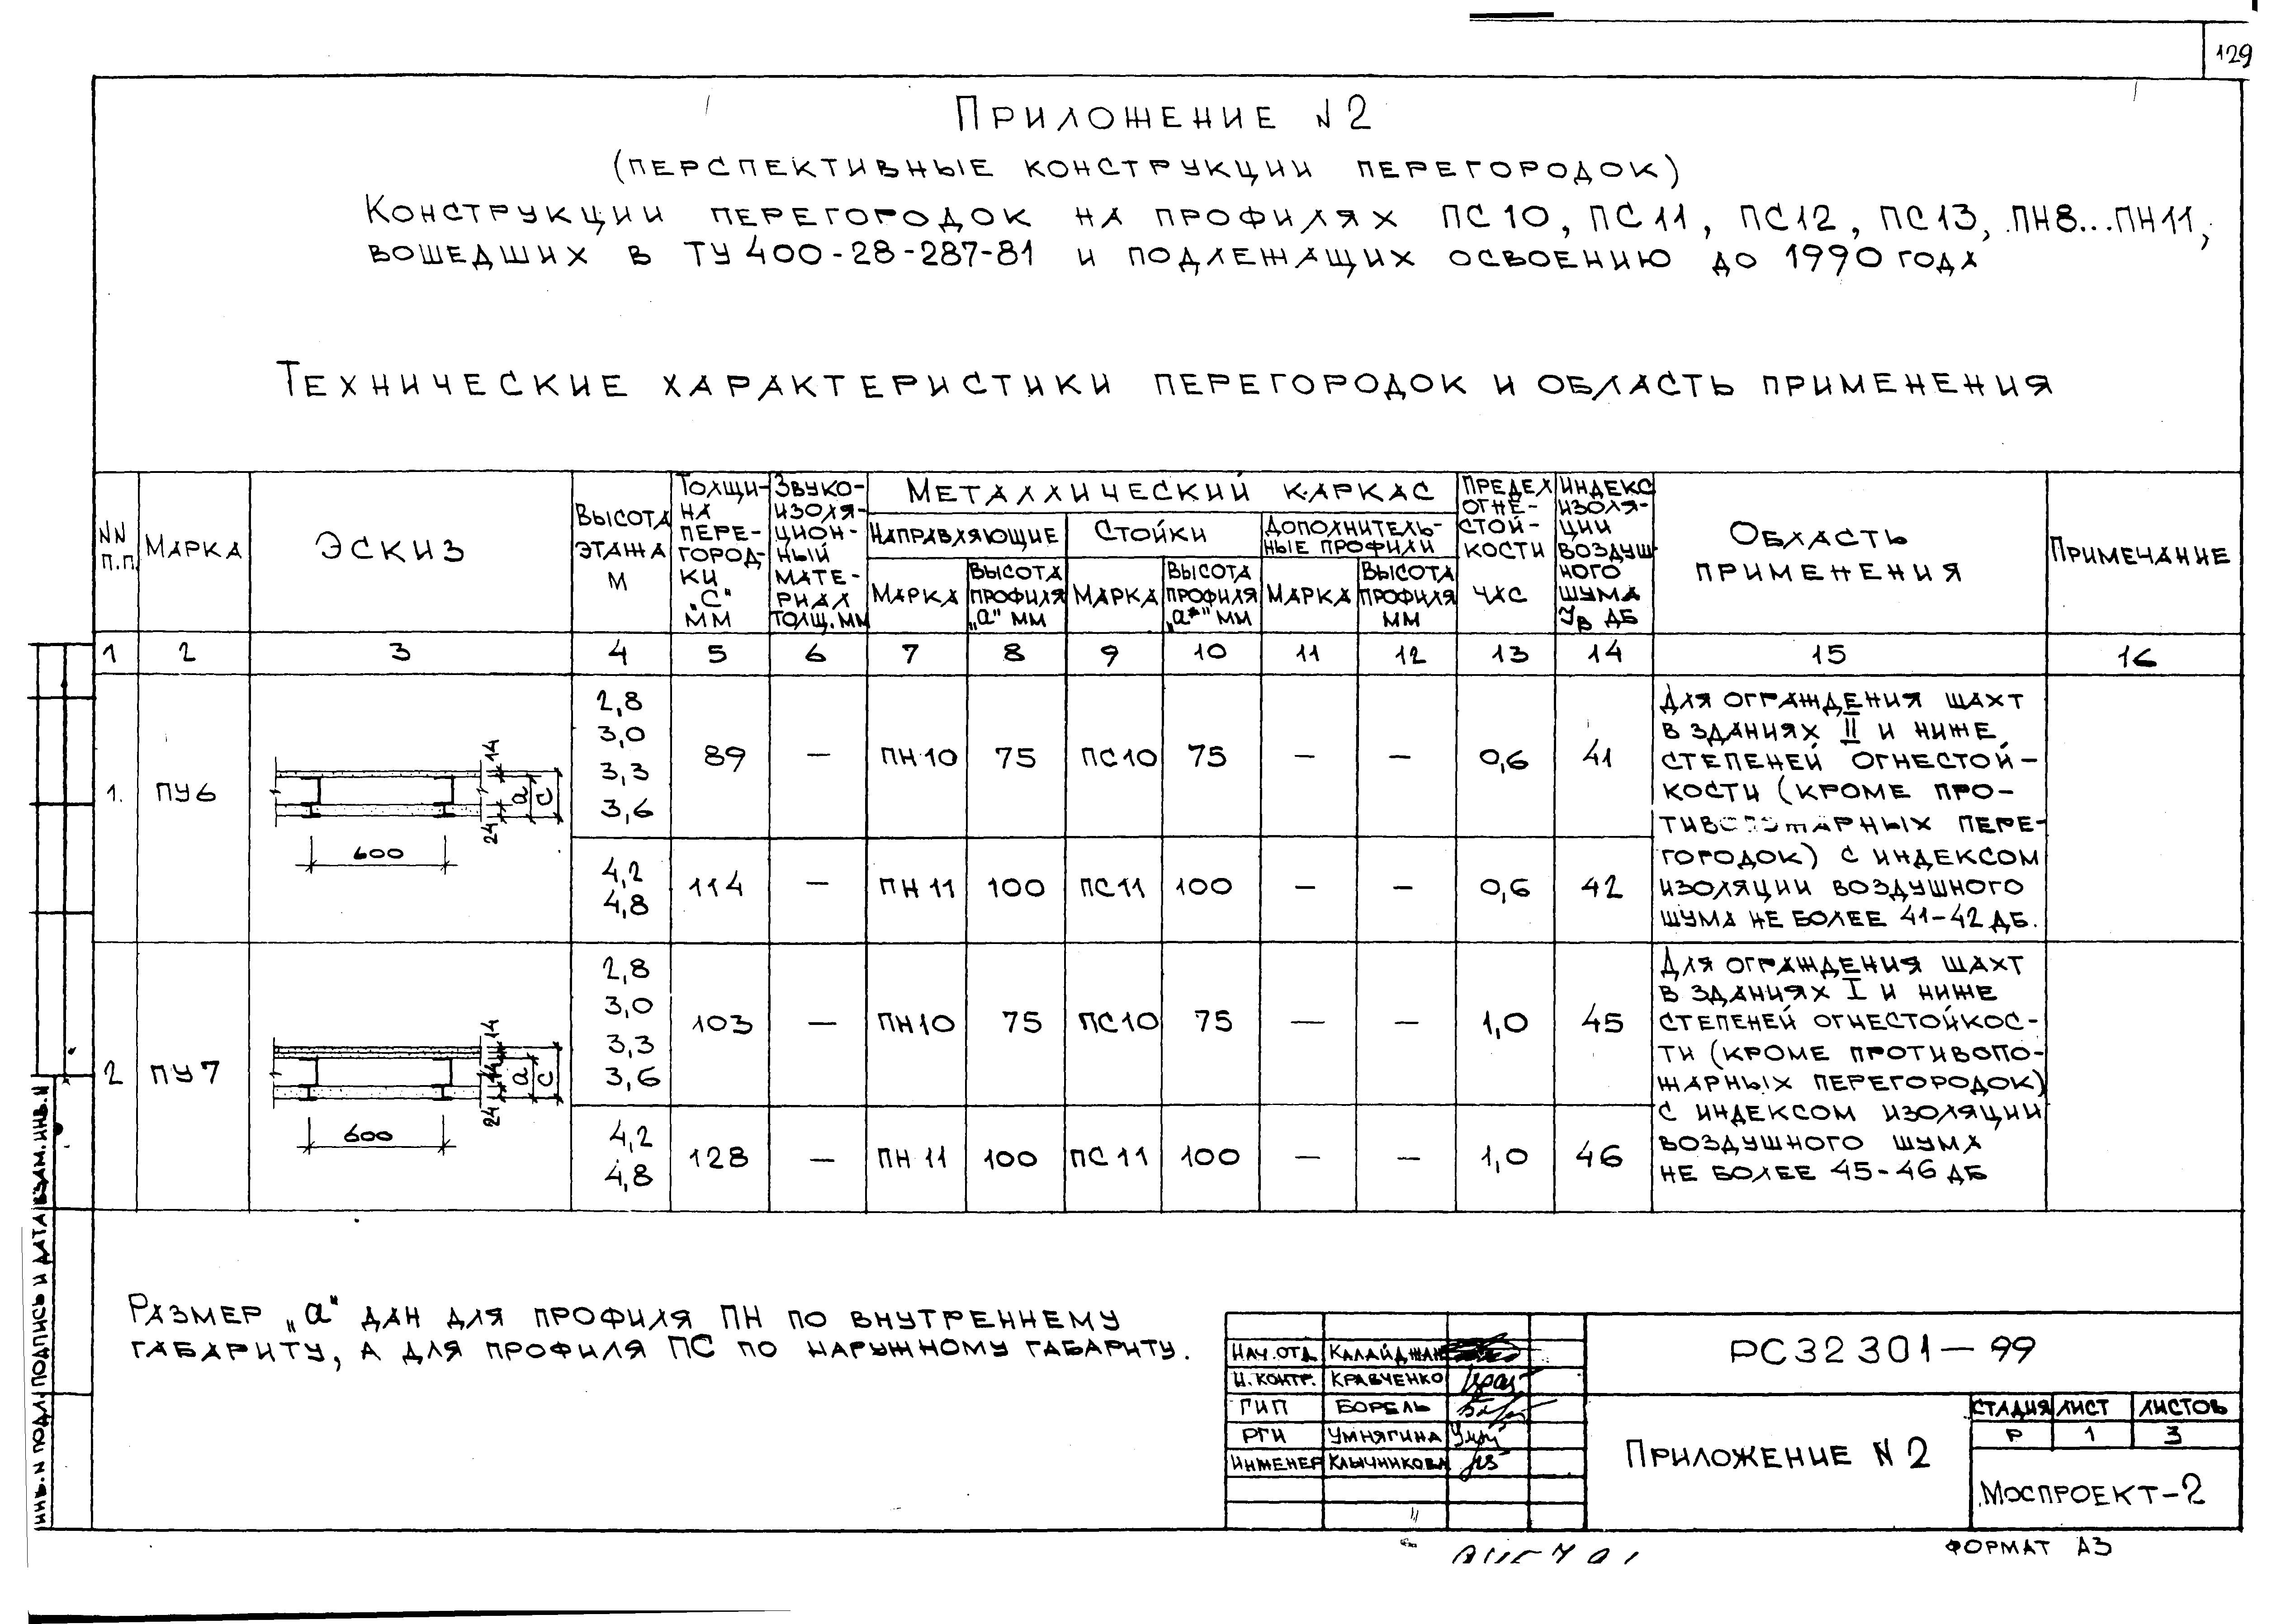 129
Приложение N 2
(перспективные конструкции перегородок)
Конструкции перегородок на профилях ПС10, ПС11, ПС12, ПС13, ПН8...ПН11,
вошедших в ТУ 400-28-287-81 и подлежащих освоению до 1990 года
Технические характеристики перегородок и область применения
NN п.п.
Марка
Эскиз
Высота этажа м
Толщи-
на
пере-
город-
ки
„С"
мм
Звуко-
изоля-
цион-
ный
мате-
риал
толщ. мм
Металлический каркас
Направляющие
Стойки
Дополнитель-
ные профили
Марка
Высота профиля „а" мм
Марка
Высота профиля „а*" мм
Марка
Высота профиля мм
Предел
огне-
стой-
кости
час
Индекс
изоля-
ции
воздуш-
ного
шума
Iв дБ
Область
применения
Примечание
1 2 3 4 5 6 7 8 9 10 11 12 13 14 15 16
1. ПУ6
14
а
с
24
600
2,8
3,0
3,3
3,6
89 — ПН10 75 ПС10 75 — — 0,6 41
4,2
4,8
114 — ПН11 100 ПС11 100 — — 0,6 42
Для ограждения шахт
в зданиях II и ниже
степеней огнестой-
кости (кроме про-
тивопожарных пере-
городок) с индексом
изоляции воздушного
шума не более 41-42 дБ.
2 ПУ7
14
14
а
с
24
600
2,8
3,0
3,3
3,6
103 — ПН10 75 ПС10 75 — — 1,0 45
4,2
4,8
128 — ПН11 100 ПС11 100 — — 1,0 46
Для ограждения шахт
в зданиях I и ниже
степеней огнестойкос-
ти (кроме противопо-
жарных перегородок)
с индексом изоляции
воздушного шума
не более 45-46 дБ
Размер „а" дан для профиля ПН по внутреннему
габариту, а для профиля ПС по наружному габариту.
Нач. отд. Калайджан
Н. контр. Кравченко
ГИП Борель
РГИ Умнягина
Инженер Клычникова
РС32301-99
Приложение N 2
Стадия Лист Листов
Р 1 3
Моспроект-2
Формат А3
Инв. N подл. Подпись и дата Взам. инв. N